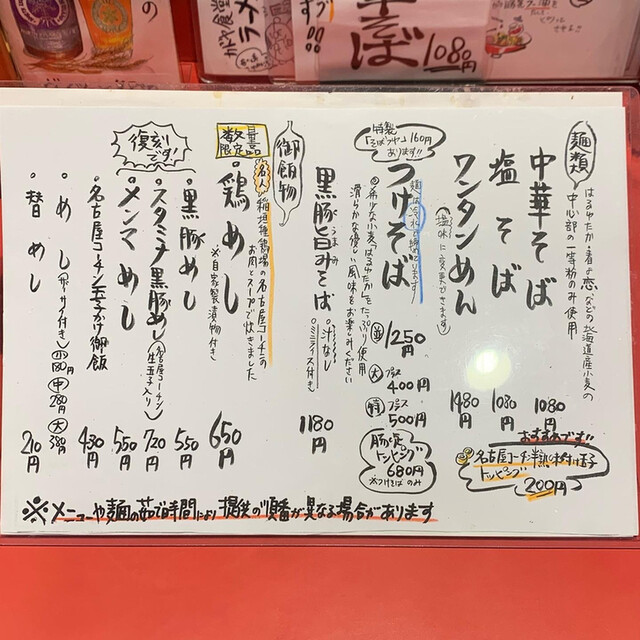 そば
1080円
麺類
はるゆたか・春よ恋などの北海道産小麦の
中心部の一等粉のみ使用
中華そば
1080円
塩そば
1080円
ワンタンめん
(塩味に変更できます)
1480円
おすすめです!!
名古屋コーチン半熟味付け玉子
トッピング
200円
特製
「そばつゆ」160円
あります!!
つけそば
麺は冷水で締めております
希少な小麦“はるゆたか”をたっぷり使用
滑らかな優しい風味をお楽しみください
並 1250円
大 プラス 400円
特 プラス 500円
トッピング
680円
※つけそばのみ
黒豚旨みそば
・汁なし
(ミニライス付き)
1180円
御飯物
数量
限定品
・鶏めし
名人 稲垣種鶏場の名古屋コーチンの
お肉とスープで炊きました
※自家製漬物付き
650円
・黒豚めし
550円
復刻
です!
・スタミナ黒豚めし(名古屋コーチン
生玉子入り)
720円
・メンマめし
550円
・名古屋コーチン玉子かけ御飯
430円
・めし
小180円 中280円 大380円
・替めし
210円
※メニューや麺の茹で時間により提供の順番が異なる場合があります